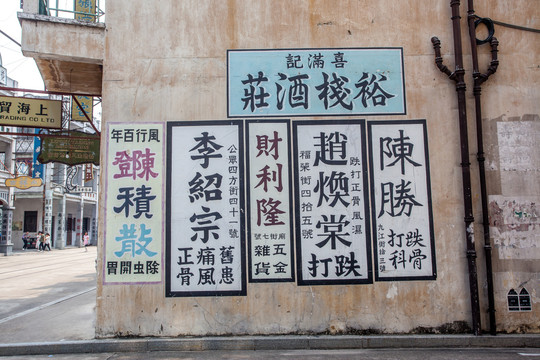 喜滿記
裕棧酒莊
陳勝
跌骨
打科
九上街拾三號
趙煥棠
跌打正骨風濕
福榮街四拾五號
跌打
財利隆
南街七號
五金
雜貨
李紹宗
公眾四方街四十一號
舊患
痛風
正骨
風行百年
鄧積散
除虫開胃
上海貿
TRADING CO LTD